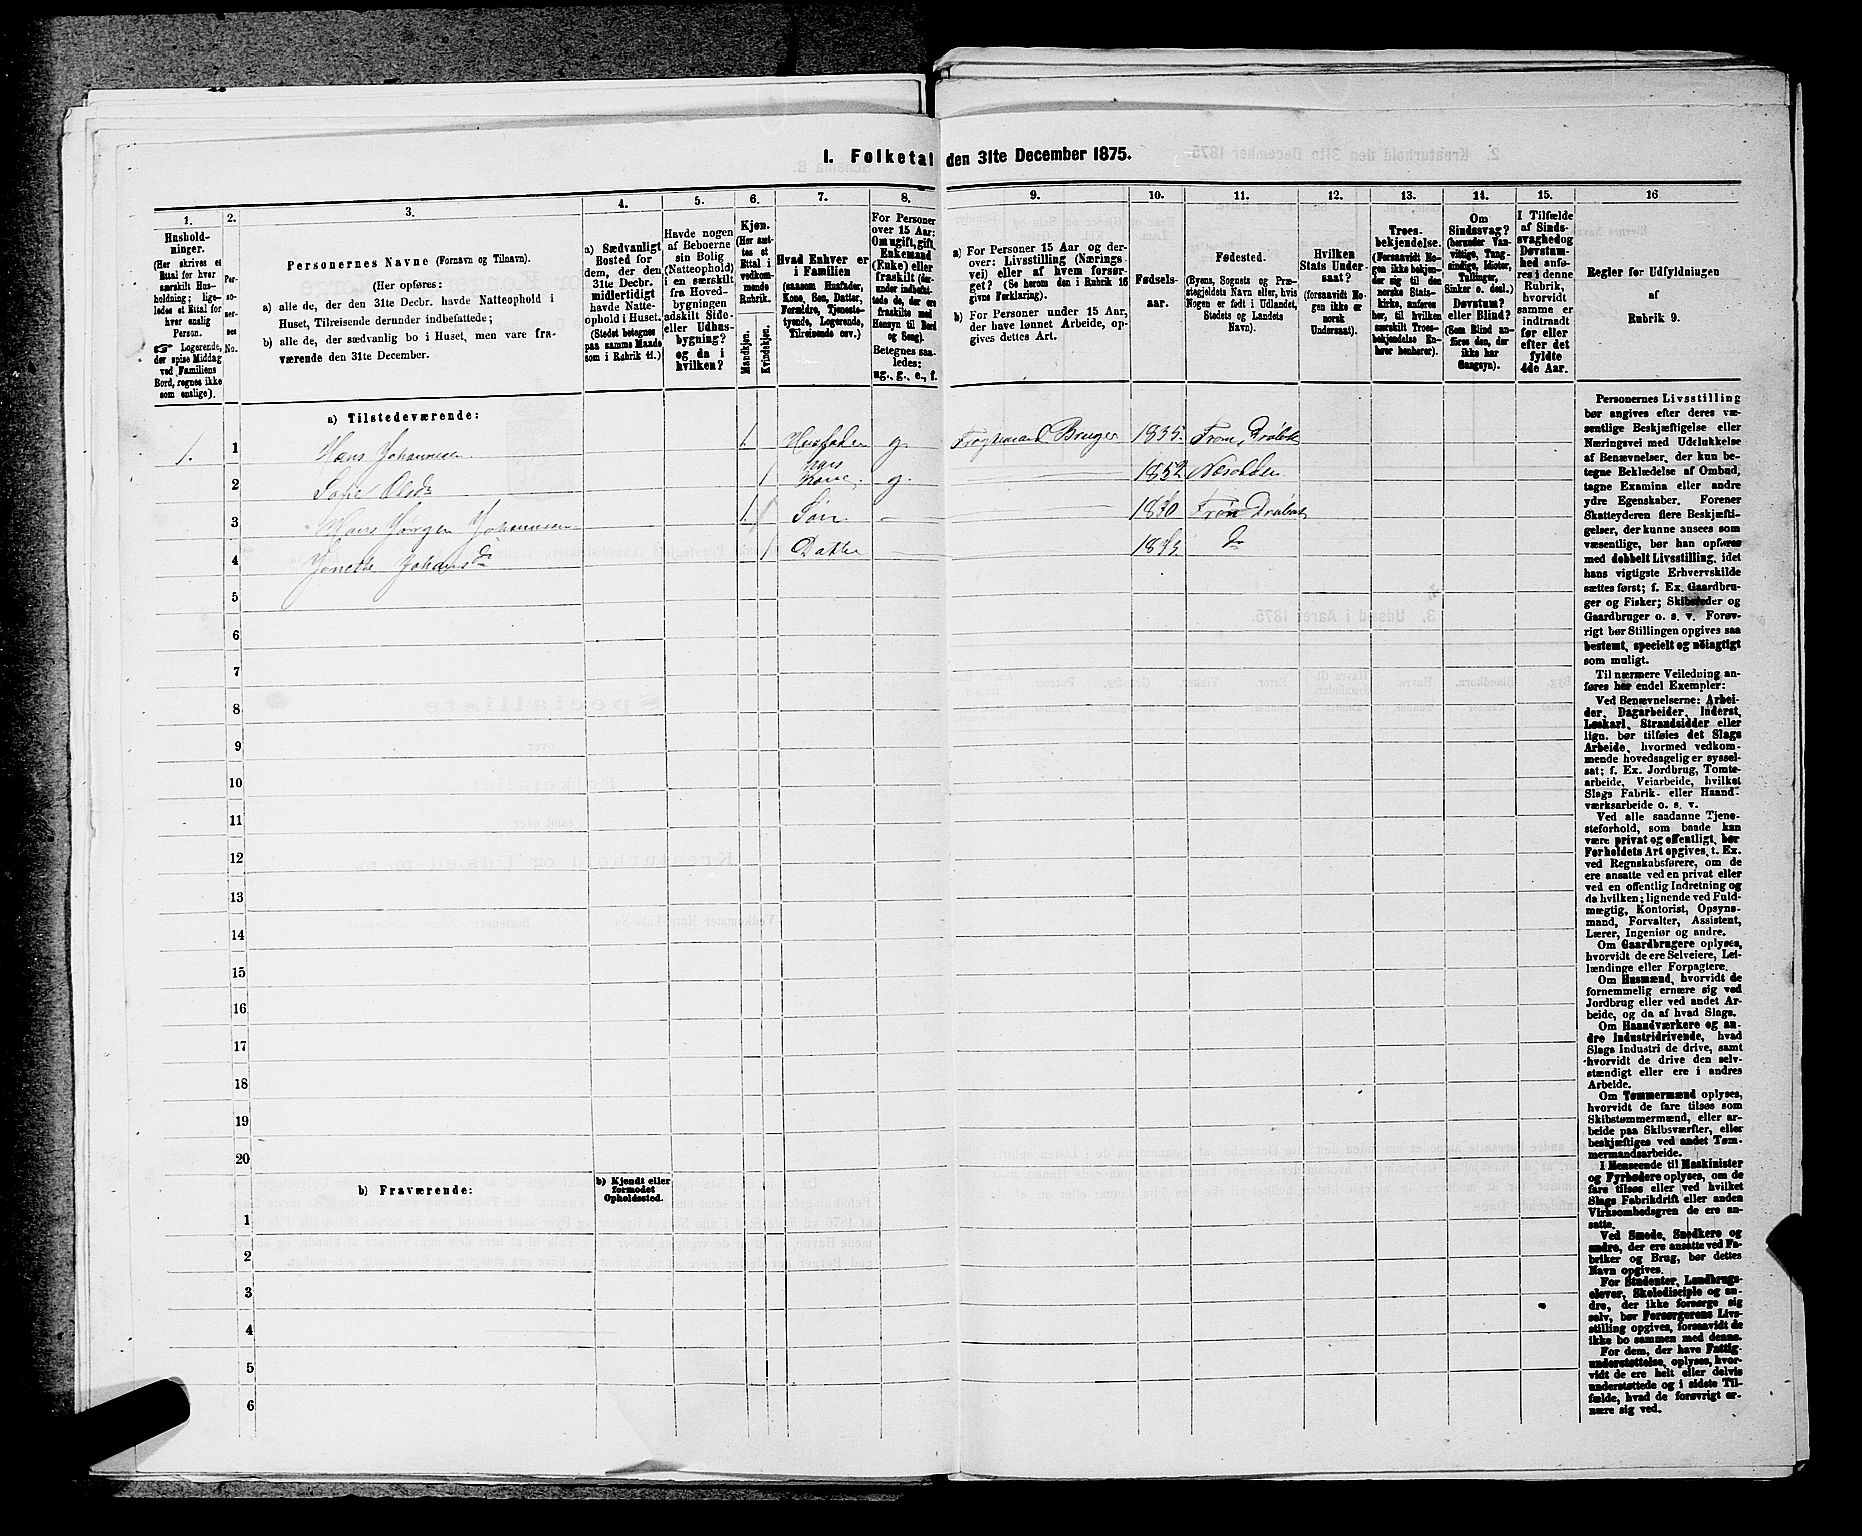 1. Folketal den 31te December 1875.
1.
Hushold-
ninger.
(Her skrives et
Ettal for hver
særskilt Hus-
holdning; lige-
ledes et Ettal for
hver enslig
Person.
Logerende,
der spise Middag
ved Familiens
Bord, regnes ikke
som enslige).
2.
Per-
so-
ner-
nes
No.
3.
Personernes Navne (Fornavn og Tilnavn).
(Her opføres:
a) alle de, der den 31te Decbr. havde Natteophold i
Huset, Tilreisende derunder indbefattede;
b) alle de, der sædvanlig bo i Huset, men vare fra-
værende den 31te December.
4.
a) Sædvanligt
Bosted for
dem, der den
31te Decbr.
midlertidigt
havde Natte-
ophold i Huset.
(Stedet betegnes
paa samme Maade
som i Rubrik 11.)
5.
Havde nogen
af Beboerne
sin Bolig
(Natteophold)
i en særskilt
fra Hoved-
bygningen
adskilt Side-
eller Udhus-
bygning?
og da i
hvilken?
6.
Kjøn.
(Her sæt-
tes et
Ettal i
vedkom-
mende
Rubrik.
Mandkjøn.
Kvindekjøn.
7.
Hvad Enhver er
i Familien
(saasom Husfader,
Kone, Søn, Datter,
Forældre, Tjeneste-
tyende, Logerende,
Tilreisende osv.)
8.
For Personer
over 15 Aar:
Om ugift, gift,
Enkemand
(Enke) eller
fraskilt (der-
under indbefat-
tede de, der ere
fraskilte med
Hensyn til Bord
og Seng).
Betegnes saa-
ledes:
ug., g., e., f.
9.
a) For Personer 15 Aar og der-
over: Livsstilling (Nærings-
vei) eller af hvem forsør-
get? (Se herom den i Rubrik 16
givne Forklaring).
b) For Personer under 15 Aar,
der have lønnet Arbeide, op-
gives dettes Art.
10.
Fødsels-
aar.
11.
Fødested.
(Byens, Sognets og Præ-
stegjeldets Navn eller, hvis
Nogen er født i Udlandet,
Stedets og Landets
Navn).
12.
Hvilken
Stats Under-
saat?
(forsaavidt No-
gen ikke er
norsk
Undersaat).
13.
Troes-
bekjendelse.
(Forsaavidt No-
gen ikke bekjen-
der sig til den
norske Stats-
kirke, anføres
her, til hvilken
særskilt Troes-
bekjendelse En-
hver henhører).
14.
Om
Sindssvag?
(herunder Van-
vittige, Tung-
sindige, Idioter,
Tullinger,
Sinker o. desl.)
Døvstum?
eller Blind?
(Som Blind an-
føres den, der
ikke har
Gangsyn).
15.
I Tilfælde
af Sinds-
svaghed og
Døvstum-
hed anfø-
res i denne
Rubrik,
hvorvidt
samme er
indtraadt
før eller
efter det
fyldte
4de Aar.
16
Regler for Udfyldningen
af
Rubrik 9.
a) Tilstedeværende:
1. 1 Hans Johannesen 1 Husfader g. Bruger 1835 Frøn, Drøbak
2 Olsdr 1 hans Kone. g. 1852 Næsodden
3 Hans Jørgen Johannesen 1 Søn — 1870 Frøn Drøbak
4 1 Datter — 1873 do
5
6
7
8
9
10
11
12
13
14
15
16
17
18
19
20
b) Fraværende:
b) Kjendt eller
formodet
Opholdssted.
1
2
3
4
5
6
Personernes Livsstilling
bør angives efter deres væ-
sentlige Beskjæftigelse eller
Næringsvei med Udelukkelse
af Benævnelser, der kun be-
tegne Beklædelse af Ombud,
tagne Examina eller andre
ydre Egenskaber. Forener
Skatteyderen flere Beskjæfti-
gelser, der kunne ansees som
væsentlige, bør han opføres
med dobbelt Livsstilling, idet
hans vigtigste Erhvervskilde
sættes først; f. Ex. Gaardbru-
ger og Fisker; Skibsreder og
Gaardbruger o. s. v. Forøv-
rigt bør Stillingen opgives saa
bestemt, specielt og nøiagtigt
som muligt.
Til nærmere Veiledning an-
føres her endel Exempler:
Ved Benævnelserne: Arbei-
der, Dagarbeider, Inderst,
Løskarl, Strandsidder eller
lign. bør tilføies det Slags
Arbeide, hvormed vedkom-
mende hovedsagelig er syssel-
sat; f. Ex. Jordbrug, Tomte-
arbeide, Veiarbeide, hvilket
Slags Fabrik- eller Haand-
værksarbeide o. s. v.
Ved alle saadanne Tjene-
steforhold, som baade kan
være privat og offentligt, bør
Forholdets Art opgives, t. Ex.
ved Regnskabsførere, om de
ere ansatte ved en privat eller
ved en offentlig Indretning og
da hvilken; lignende ved Fuld-
mægtig, Kontorist, Opsyns-
mand, Forvalter, Assistent,
Lærer, Ingeniør og andre.
Om Gaardbrugere oplyses,
hvorvidt de ere Selveiere, Lei-
lændinge eller Forpagtere.
Om Husmænd, hvorvidt de
fornemmelig ernære sig ved
Jordbrug eller ved andet Ar-
beide, og da af hvad Slags.
Om Haandværkere og an-
dre Industridrivende, hvad
Slags Industri de drive, samt
hvorvidt de drive den selv-
stændigt eller ere i andres
Arbeide.
Om Tømmermænd oplyses,
hvorvidt de fare tilsøs som
Skibstømmermænd, eller ar-
beide paa Skibsværfter, eller
beskjæftiges ved andet Tøm-
mermandsarbeide.
I Henseende til Maskinister
og Fyrbødere oplyses, om de
fare tilsøs eller ved hvilket
Slags Fabrikdrift eller anden
Virksomhedsgren de ere an-
satte.
Ved Smede, Snedkere og
andre, der ere ansatte ved Fa-
briker og Brug, bør dettes
Navn opgives.
For Studenter, Landbrugs-
elever, Skoledisciple og an-
dre, der ikke forsørge sig
selv, bør Forsørgerens Livs-
stilling opgives, forsaavidt de
ikke bo sammen med denne.
For dem, der have Fattig-
understøttelse, oplyses, hvor-
vidt de ere helt eller delvis
understøttede og i sidste Til-
fælde, hvad de forøvrigt er-
nære sig ved.